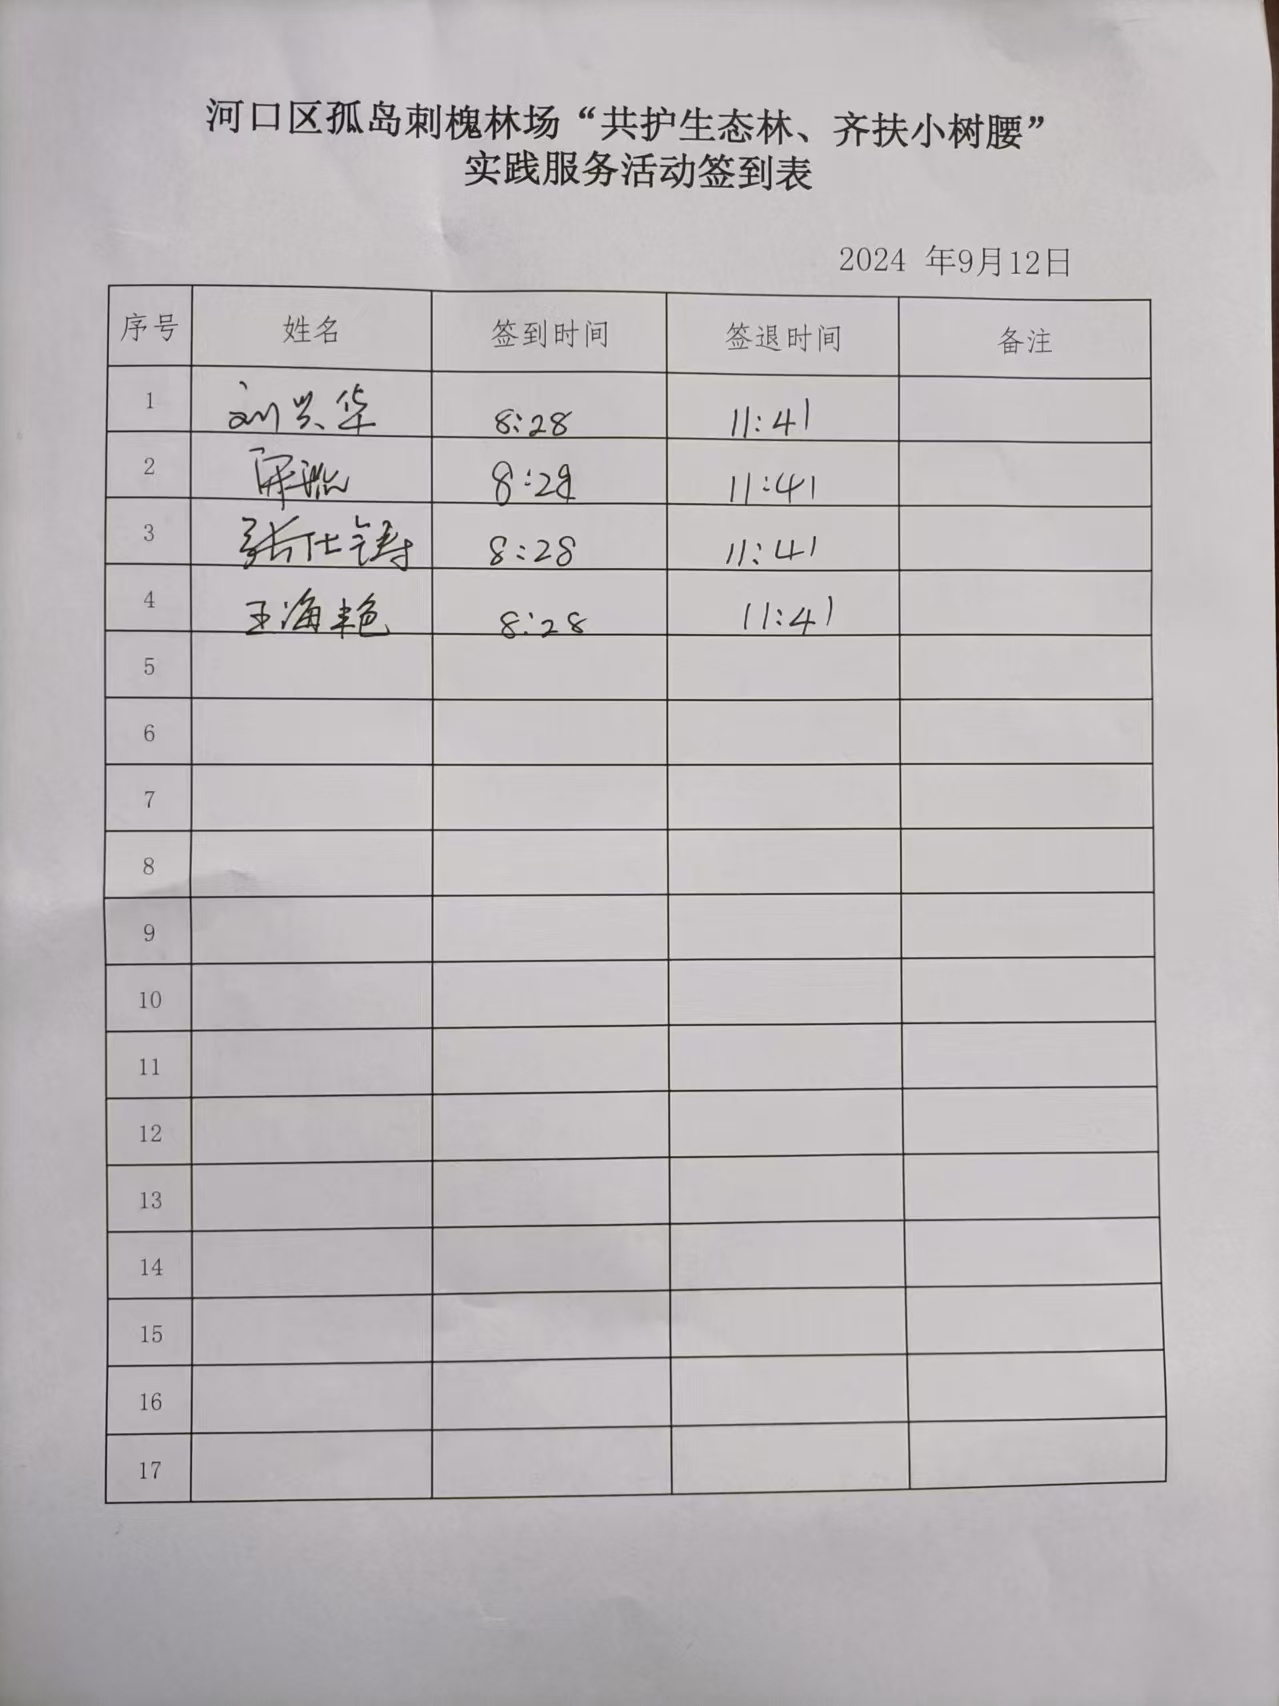 河口区孤岛刺槐林场“共护生态林、齐扶小树腰”
实践服务活动签到表
2024 年9月12日
序号 姓名 签到时间 签退时间 备注
1 刘兴华 8:28 11:41
2 8:28 11:41
3 张仕铸 8:28 11:41
4 王海艳 8:28 11:41
5
6
7
8
9
10
11
12
13
14
15
16
17